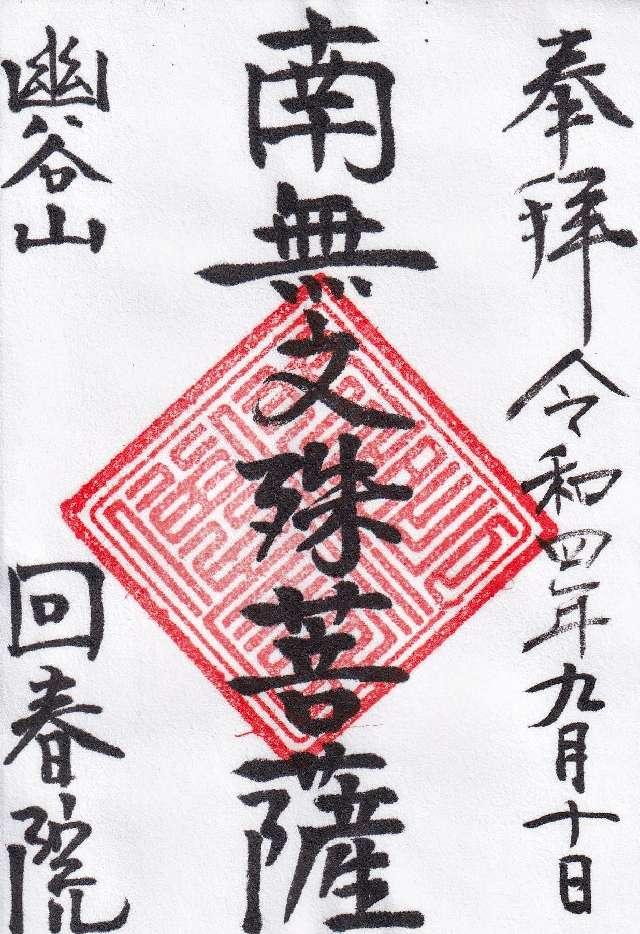 奉拝 令和四年九月十日
南無文殊菩薩
幽谷山 回春院